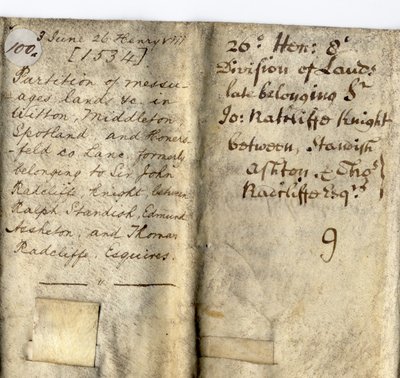 100.
3 June 26 Henry VIII
[1534]
Partition of messu-
ages lands &c. in
Witton, Middleton
Spotland and Honers-
-feld co Lanc, formerly
belonging to Sir John
Radcliffe Knight between
Ralph Standish, Edmund
Assheton, and Thomas
Radcliffe, Esquires.
26° Hen: 8:
Division of Lands
late belonging Sr
Jo: Ratcliffe Knight
between, Standish
Ashton & Tho:
Radcliffe Esqrs
9